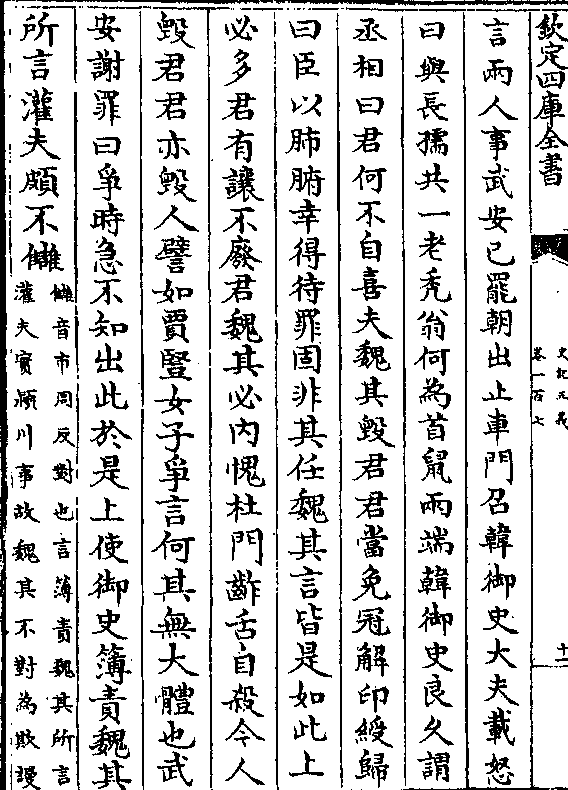 欽定四庫全書
史記正義
卷一百七
十二
言兩人事武安已罷朝出止車門召韓御史大夫載怒
曰與長孺共一老秃翁何為首鼠兩端韓御史良久謂
丞相曰君何不自喜夫魏其毀君君當免冠解印綬歸
曰臣以肺腑幸得待罪固非其任魏其言皆是如此上
必多君有讓不廢君魏其必內愧杜門齰舌自殺今人
毀君君亦毀人譬如賈豎女子爭言何其無大體也武
安謝罪曰爭時急不知出此於是上使御史簿責魏其
所言灌夫頗不讎
讎音市周反對也言簿責魏其所言
灌夫實潁川事故魏其不對為欺謾